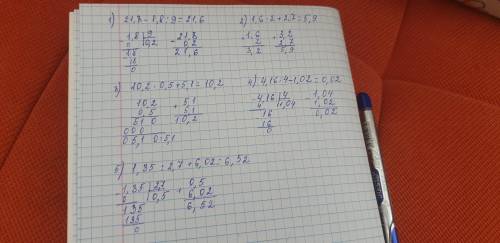 1) 21,8 - 1,8 : 9 = 21,6
1,8 | 9
0,2
18
18
0
21,8
- 0,2
21,6
2) 1,6 · 2 + 2,7 = 5,9
× 1,6
2
3,2
+ 3,2
2,7
5,9
3) 10,2 · 0,5 + 5,1 = 10,2
10,2
0,5
510
000
05,10 = 5,1
+ 5,1
5,1
10,2
4) 4,16 : 4 - 1,02 = 0,02
4,16 | 4
4
1,04
16
16
0
- 1,04
1,02
0,02
5) 1,35 : 2,7 + 6,02 = 6,52
1,35 | 2,7
0
0,5
135
135
0
+ 0,5
6,02
6,52